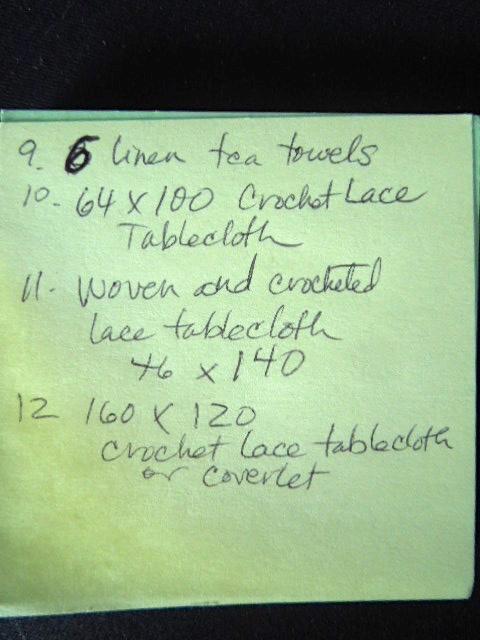 9. 6 linen tea towels
10. 64 x 100 Crochet Lace
Tablecloth
11. Woven and crocheted
lace tablecloth
46 x 140
12 160 x 120
crochet lace tablecloth
or coverlet